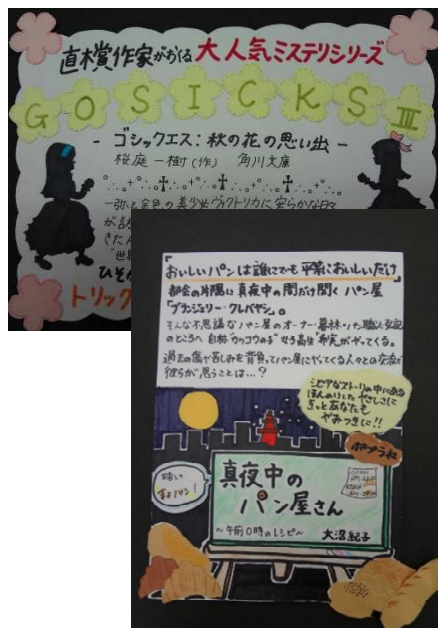 直木賞作家がおくる大人気ミステリシリーズ
GOSICKSⅢ
-ゴシックエス:秋の花の思い出-
桜庭一樹(作) 角川文庫
一弥と金色の美少女ヴィクトリカに安らかな日々
が
きた
世界
ひそ
トリック
「おいしいパンは誰にでも平等においしいだけ」
都会の片隅に真夜中の間だけ開くパン屋
「ブランジェリー・クレバヤシ」。
そんな不思議なパン屋のオーナー・暮林、パン職人・弘基
のところへ自称"カッコウの子"女子高生"希実"がやってくる。
過去の傷や苦しみを背負ってパン屋にやってくる人々との交流で
彼らが思うことは…?
シビアなストーリの中にある
ほんのりした やさしさに
きっとあなたも
やみつきに!!
ポプラ社
真夜中の
パン屋さん
~午前0時のレシピ~
大沼紀子